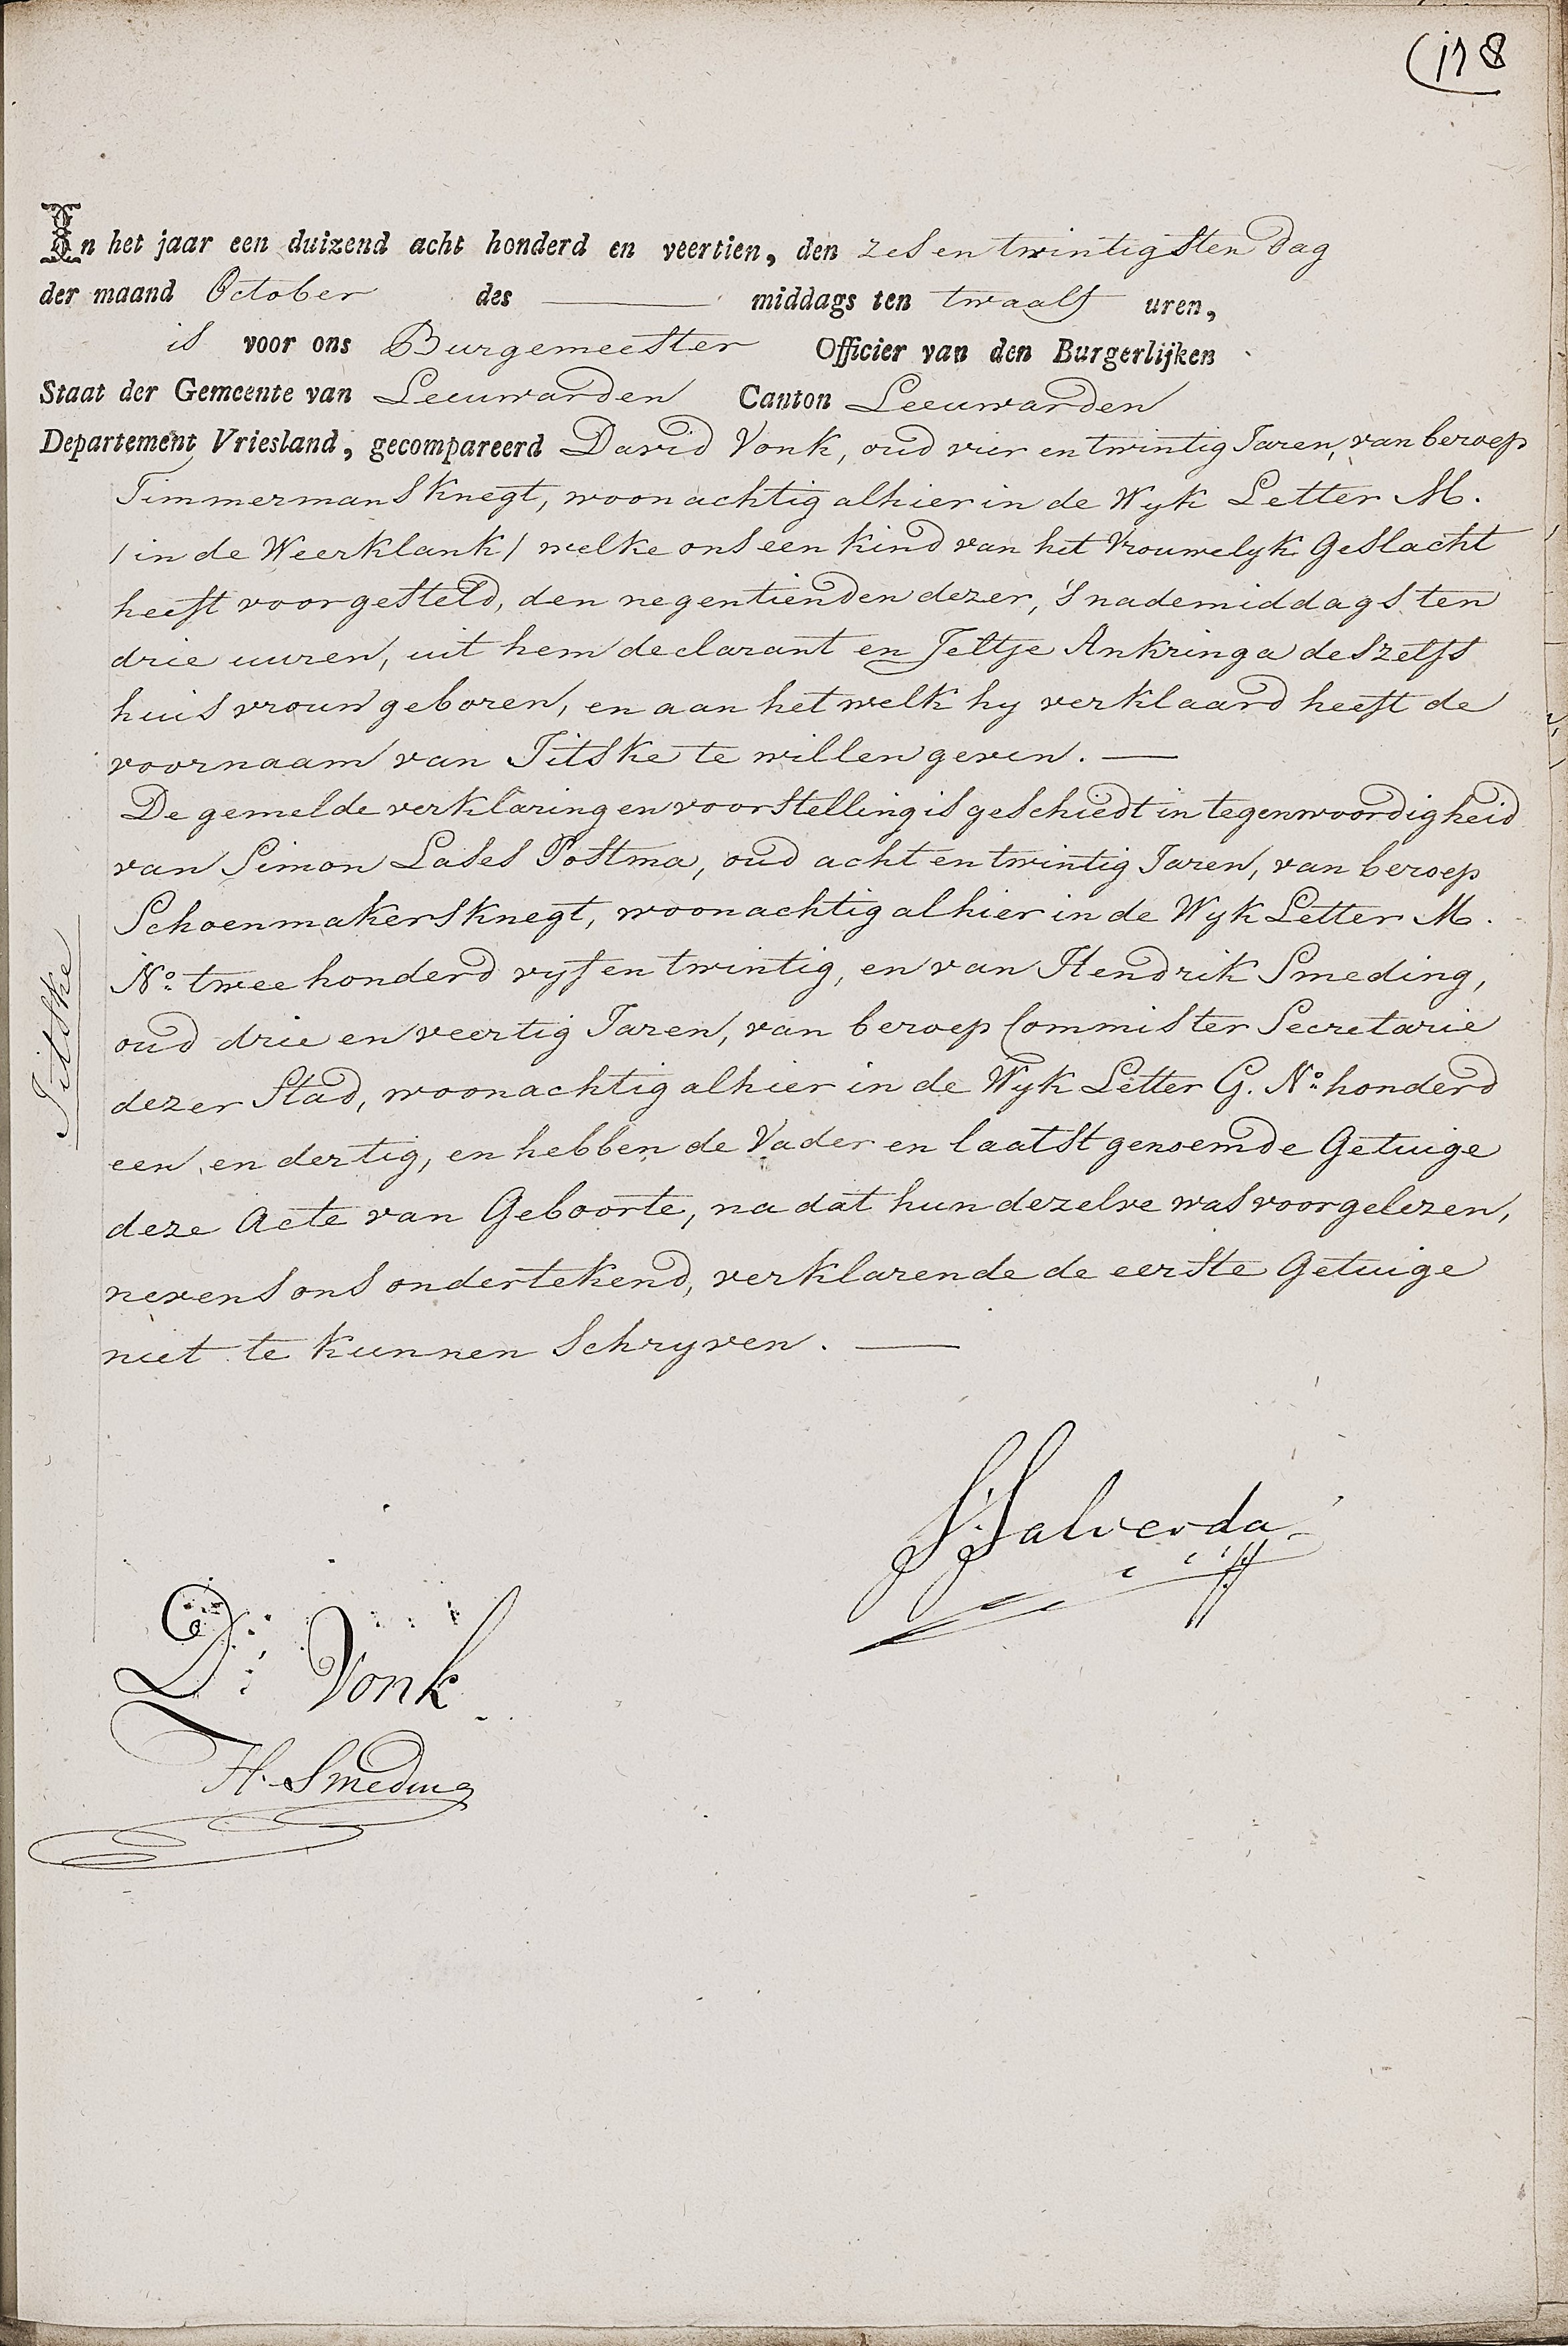 (178
In het jaar een duizend acht honderd en veertien, den zes en twintigsten dag
der maand October des —— middags ten twaalf uren,
is voor ons Burgemeester Officier van den Burgerlijken
Staat der Gemeente van Leeuwarden Canton Leeuwarden
Departement Vriesland, gecompareerd David Vonk, oud vier en twintig Jaren, van beroep
Timmermans Knegt, woonachtig alhier in de Wyk Letter M.
/ in de Weerklank / welke ons een kind van het Vrouwelyk Geslacht
heeft voorgesteld, den negentienden dezer, 's nademiddags ten
drie uuren, uit hem declarant en Jeltje Ankringa deszelfs
huisvrouw geboren, en aan het welk hy verklaard heeft de
voornaam van Titske te willen geven. —
De gemelde verklaring en voorstelling is geschiedt in tegenwoordigheid
van Simon Lases Postma, oud acht en twintig Jaren, van beroep
Schoenmakersknegt, woonachtig alhier in de Wyk Letter M.
No. twee honderd vyf en twintig, en van Hendrik Smeding,
oud drie en veertig Jaren, van beroep Commis ter Secretarie
dezer Stad, woonachtig alhier in de Wyk Letter G. No. honderd
een en dertig, en hebben de Vader en laatstgenoemde Getuige
deze Acte van Geboorte, na dat hun dezelve was voorgelezen,
nevens ons ondertekend, verklarende de eerste Getuige
niet te kunnen Schryven. —
Titske
S: Salverda
D: Vonk
H. Smeding